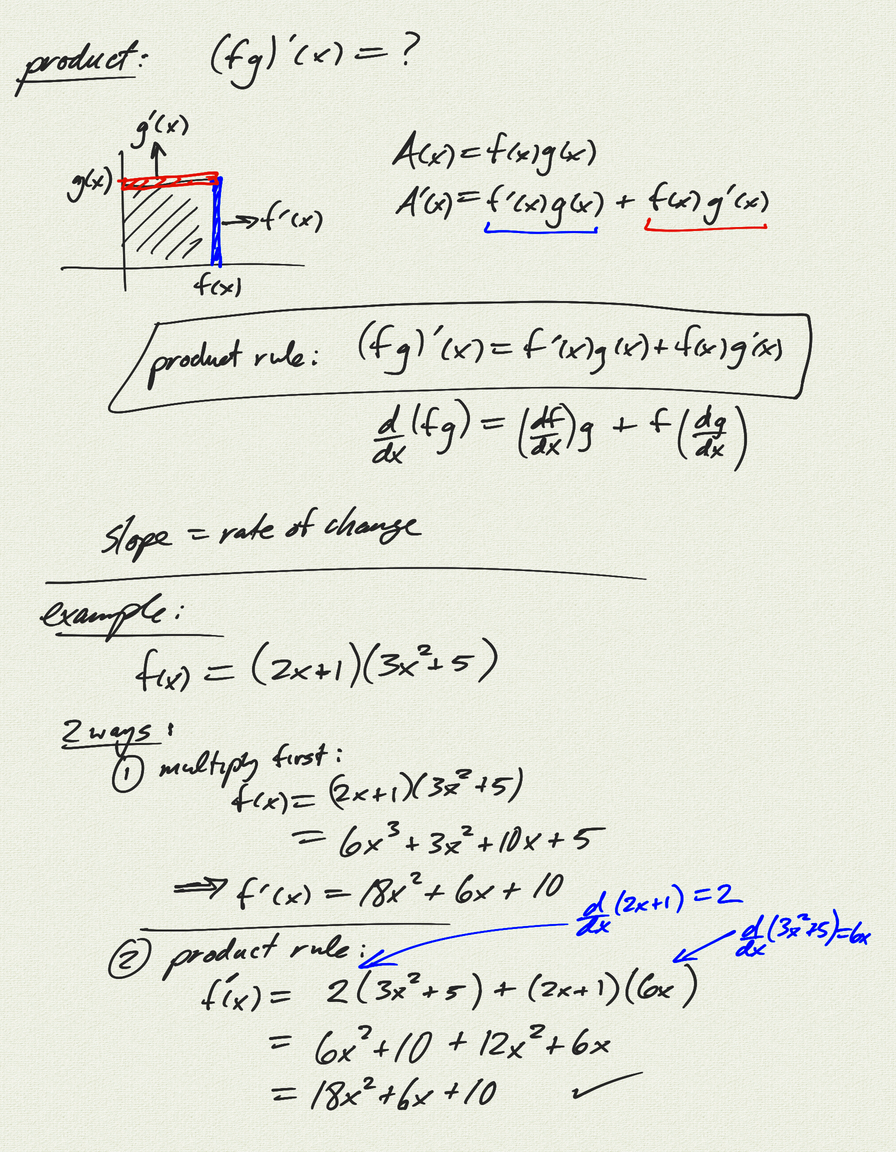 product: (fg)'(x) = ?
g'(x)
g(x)
f'(x)
f(x)
A(x) = f(x)g(x)
A'(x) = f'(x)g(x) + f(x)g'(x)
product rule: (fg)'(x) = f'(x)g(x) + f(x)g'(x)
d/dx (fg) = (df/dx)g + f(dg/dx)
slope = rate of change
example:
f(x) = (2x+1)(3x²+5)
2 ways:
① multiply first:
f(x) = (2x+1)(3x²+5)
= 6x³ + 3x² + 10x + 5
⇒ f'(x) = 18x² + 6x + 10
d/dx (2x+1) = 2
d/dx (3x²+5) = 6x
② product rule:
f'(x) = 2(3x²+5) + (2x+1)(6x)
= 6x² + 10 + 12x² + 6x
= 18x² + 6x + 10 ✓